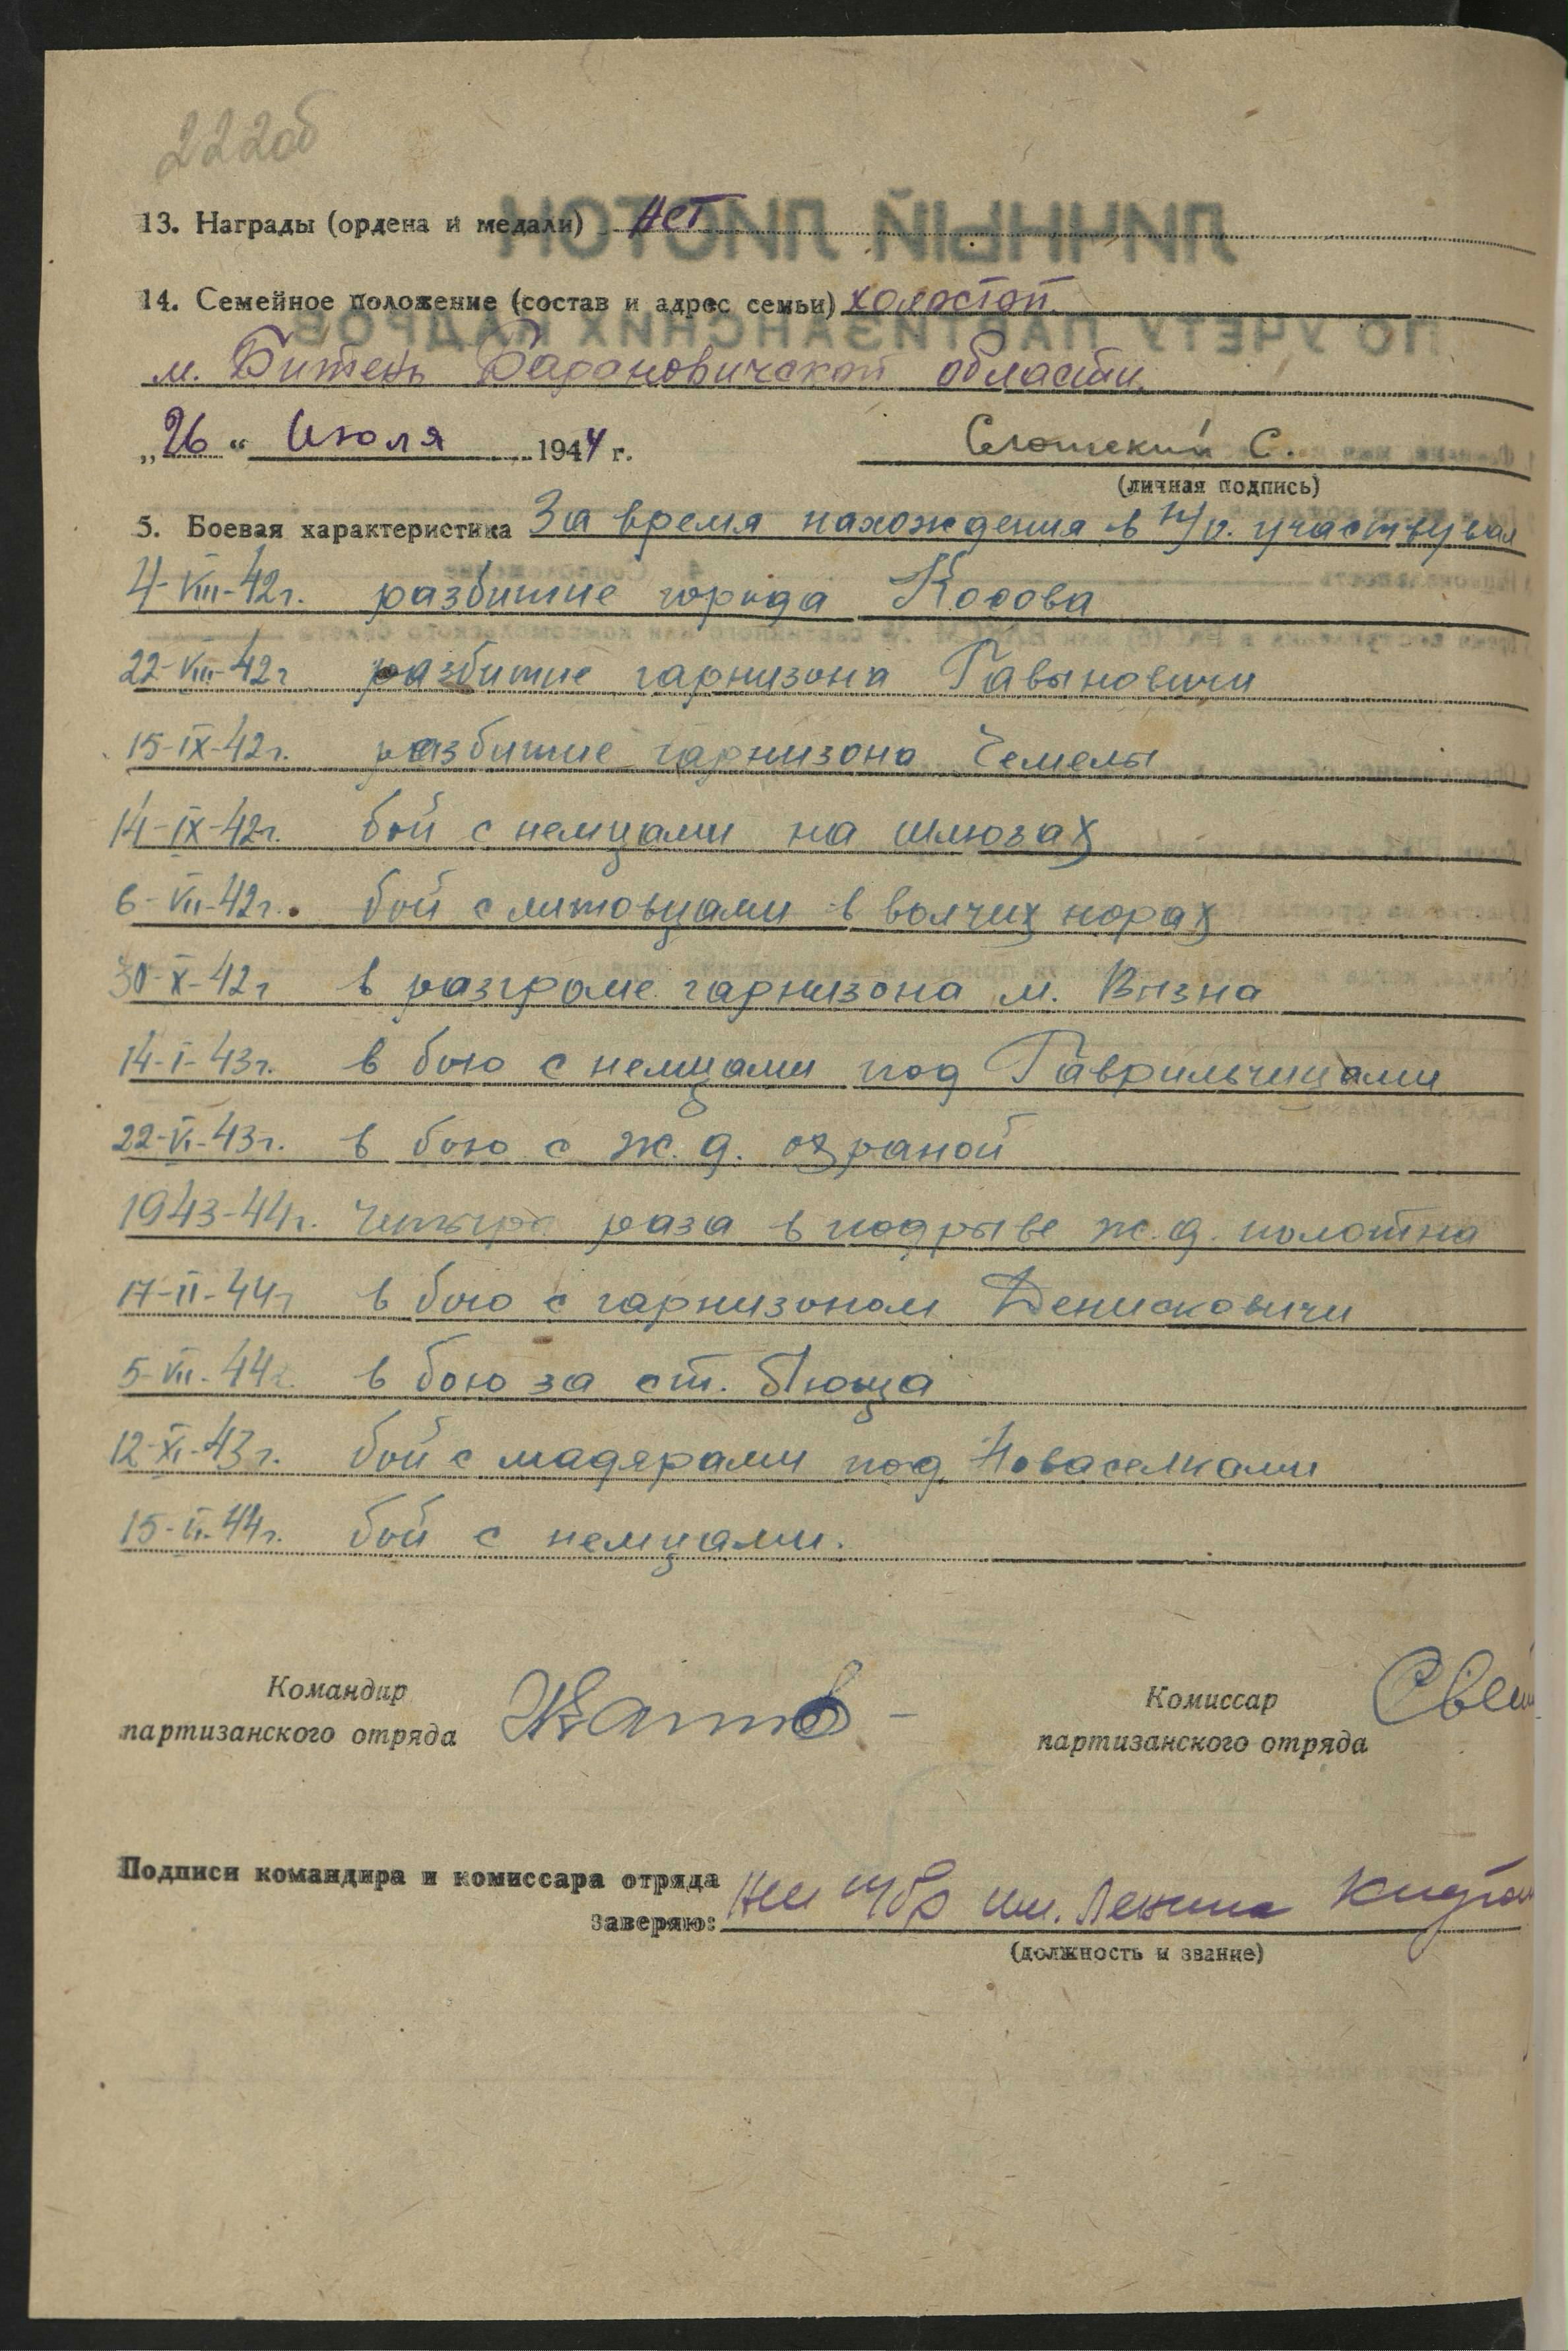 222об
13. Награды (ордена и медали) нет
14. Семейное положение (состав и адрес семьи) холостой
м. Битень Барановичской области.
„26“ Июля 1944 г. С.
(личная подпись)
5. Боевая характеристика За время нахождения в п/о. участвувал
4-VIII-42г. разбитие города Косова
22-VIII-42г разбитие гарнизона Гавыновичи
15-IX-42г. разбитие гарнизона Чемелы
14-IX-42г. бой с немцами на шлюзах
6-VII-42г. бой с литовцами в волчих норах
30-X-42г в разгроме гарнизона м. Вызна
14-I-43г. в бою с немцами под Гаврильчицами
22-VI-43г. в бою с ж.д. охраной
1943-44г. Четыре раза в подрыве ж.д. полотна
17-II-44г в бою с гарнизоном Денисковичи
5-VII-44г. в бою за ст. Люща
12-XI-43г. бой с мадярами под Новаселками
15-II-44г. бой с немцами.
Командир
партизанского отряда
Комиссар
партизанского отряда
Подписи командира и комиссара отряда
заверяю: им. Ленина
(должность и звание)